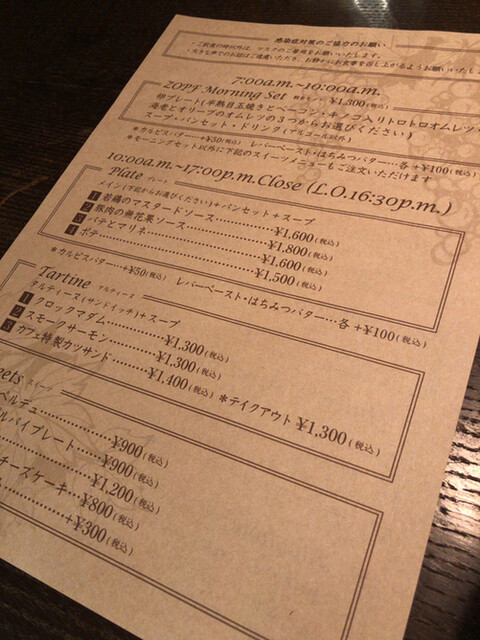 感染症対策のご協力のお願い
・ご飲食の時以外は、マスクのご着用をお願いいたします。
・大きな声でのお話はご遠慮いただき、お静かにお食事を召し上がるようお願いいたしま
7:00a.m.~10:00a.m.
ZOPF Morning Set ¥1,300(税込)
卵プレート(半熟目玉焼きとベーコン・キノコ入りトロトロオムレツ・
海老とオリーブのオムレツの３つからお選びください)
スープ・パンセット・ドリンク(アルコール以外)
＊カルピスバター…+¥50(税込) レバーペースト・はちみつバター…各 +¥100(税込)
＊モーニングセット以外に下記のスイーツメニューもご注文いただけます
10:00a.m.~17:00p.m.Close (L.O.16:30p.m.)
Plate プレート
メイン(下記からお選びください)+パンセット+スープ
1 若鶏のマスタードソース…………………¥1,600(税込)
2 豚肉の無花果ソース…………………¥1,800(税込)
3 パテとマリネ…………………¥1,600(税込)
4 ポテ…………………¥1,500(税込)
＊カルピスバター…+¥50(税込) レバーペースト・はちみつバター…各 +¥100(税込)
Tartine タルティーヌ
タルティーヌ(サンドイッチ)+スープ
1 クロックマダム…………¥1,300(税込)
2 スモークサーモン…………¥1,300(税込)
3 カフェ特製カツサンド…………¥1,400(税込) ＊テイクアウト ¥1,300(税込)
eets スイーツ
ベルデュ…………¥900(税込)
ルパイプレート……¥900(税込)
…………¥1,200(税込)
チーズケーキ…¥800(税込)
…………+¥300(税込)